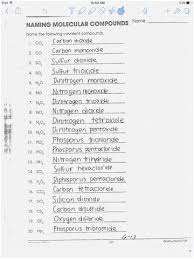 NAMING MOLECULAR COMPOUNDS Name
Name the following covalent compounds.
1. CO₂ Carbon dioxide
2. CO Carbon monoxide
3. SO₂ Sulfur dioxide
4. SO₃ Sulfur trioxide
5. N₂O Dinitrogen monoxide
6. NO Nitrogen monoxide
7. N₂O₃ Dinitrogen trioxide
8. NO₂ Nitrogen dioxide
9. N₂O₄ Dinitrogen tetroxide
10. N₂O₅ Dinitrogen pentoxide
11. PCl₃ Phosporus trichloride
12. PCl₅ Phosporus pentachloride
13. NH₃ Nitrogen trihydride
14. SCl₆ Sulfur hexachloride
15. P₂O₅ Diphosporus pentoxide
16. CCl₄ Carbon tetrachloride
17. SiO₂ Silicon dioxide
18. CS₂ Carbon disulfide
19. OF₂ Oxygen difluoride
20. PBr₃ Phosporus tribromide